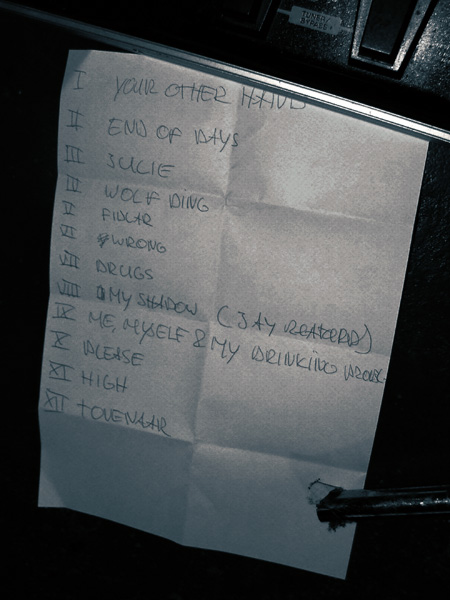 TUNER/
BYPASS
I YOUR OTHER HAND
II END OF DAYS
III SUCIE
III WOLF DING
V FIDLAR
VI WRONG
VII DRUGS
VIII MY SHADOW (JAY REATARD)
IX ME, MYSELF & MY DRINKING
X PLEASE
XI HIGH
XII TOVENAAR